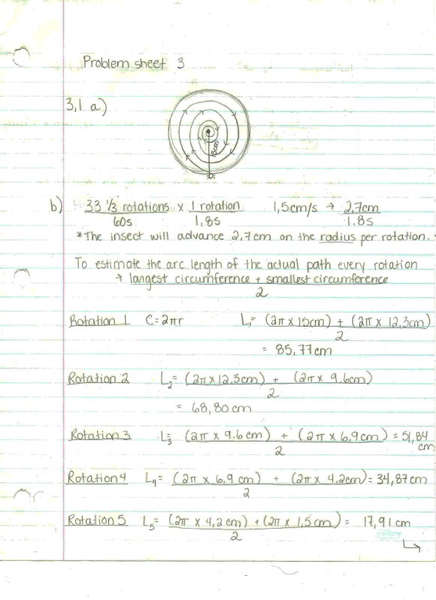 Problem sheet 3
3,1 a)
b) 33 1/3 rotations x 1 rotation 1,5cm/s → 2,7cm
60s 1,8s 1.8s
*The insect will advance 2,7cm on the radius per rotation.
To estimate the arc length of the actual path every rotation
→ largest circumference + smallest circumference
2
Rotation 1 C=2πr L₁= (2π x 15cm) + (2π x 12,3cm)
2
= 85,77cm
Rotation 2 L₂= (2π x 12.3cm) + (2π x 9.6cm)
2
= 68,80cm
Rotation 3 L₃= (2π x 9.6cm) + (2π x 6,9cm) = 51,84
2 cm
Rotation 4 L₄= (2π x 6,9 cm) + (2π x 4.2cm) = 34,87cm
2
Rotation 5 L₅= (2π x 4,2cm) + (2π x 1.5cm) = 17,91cm
2